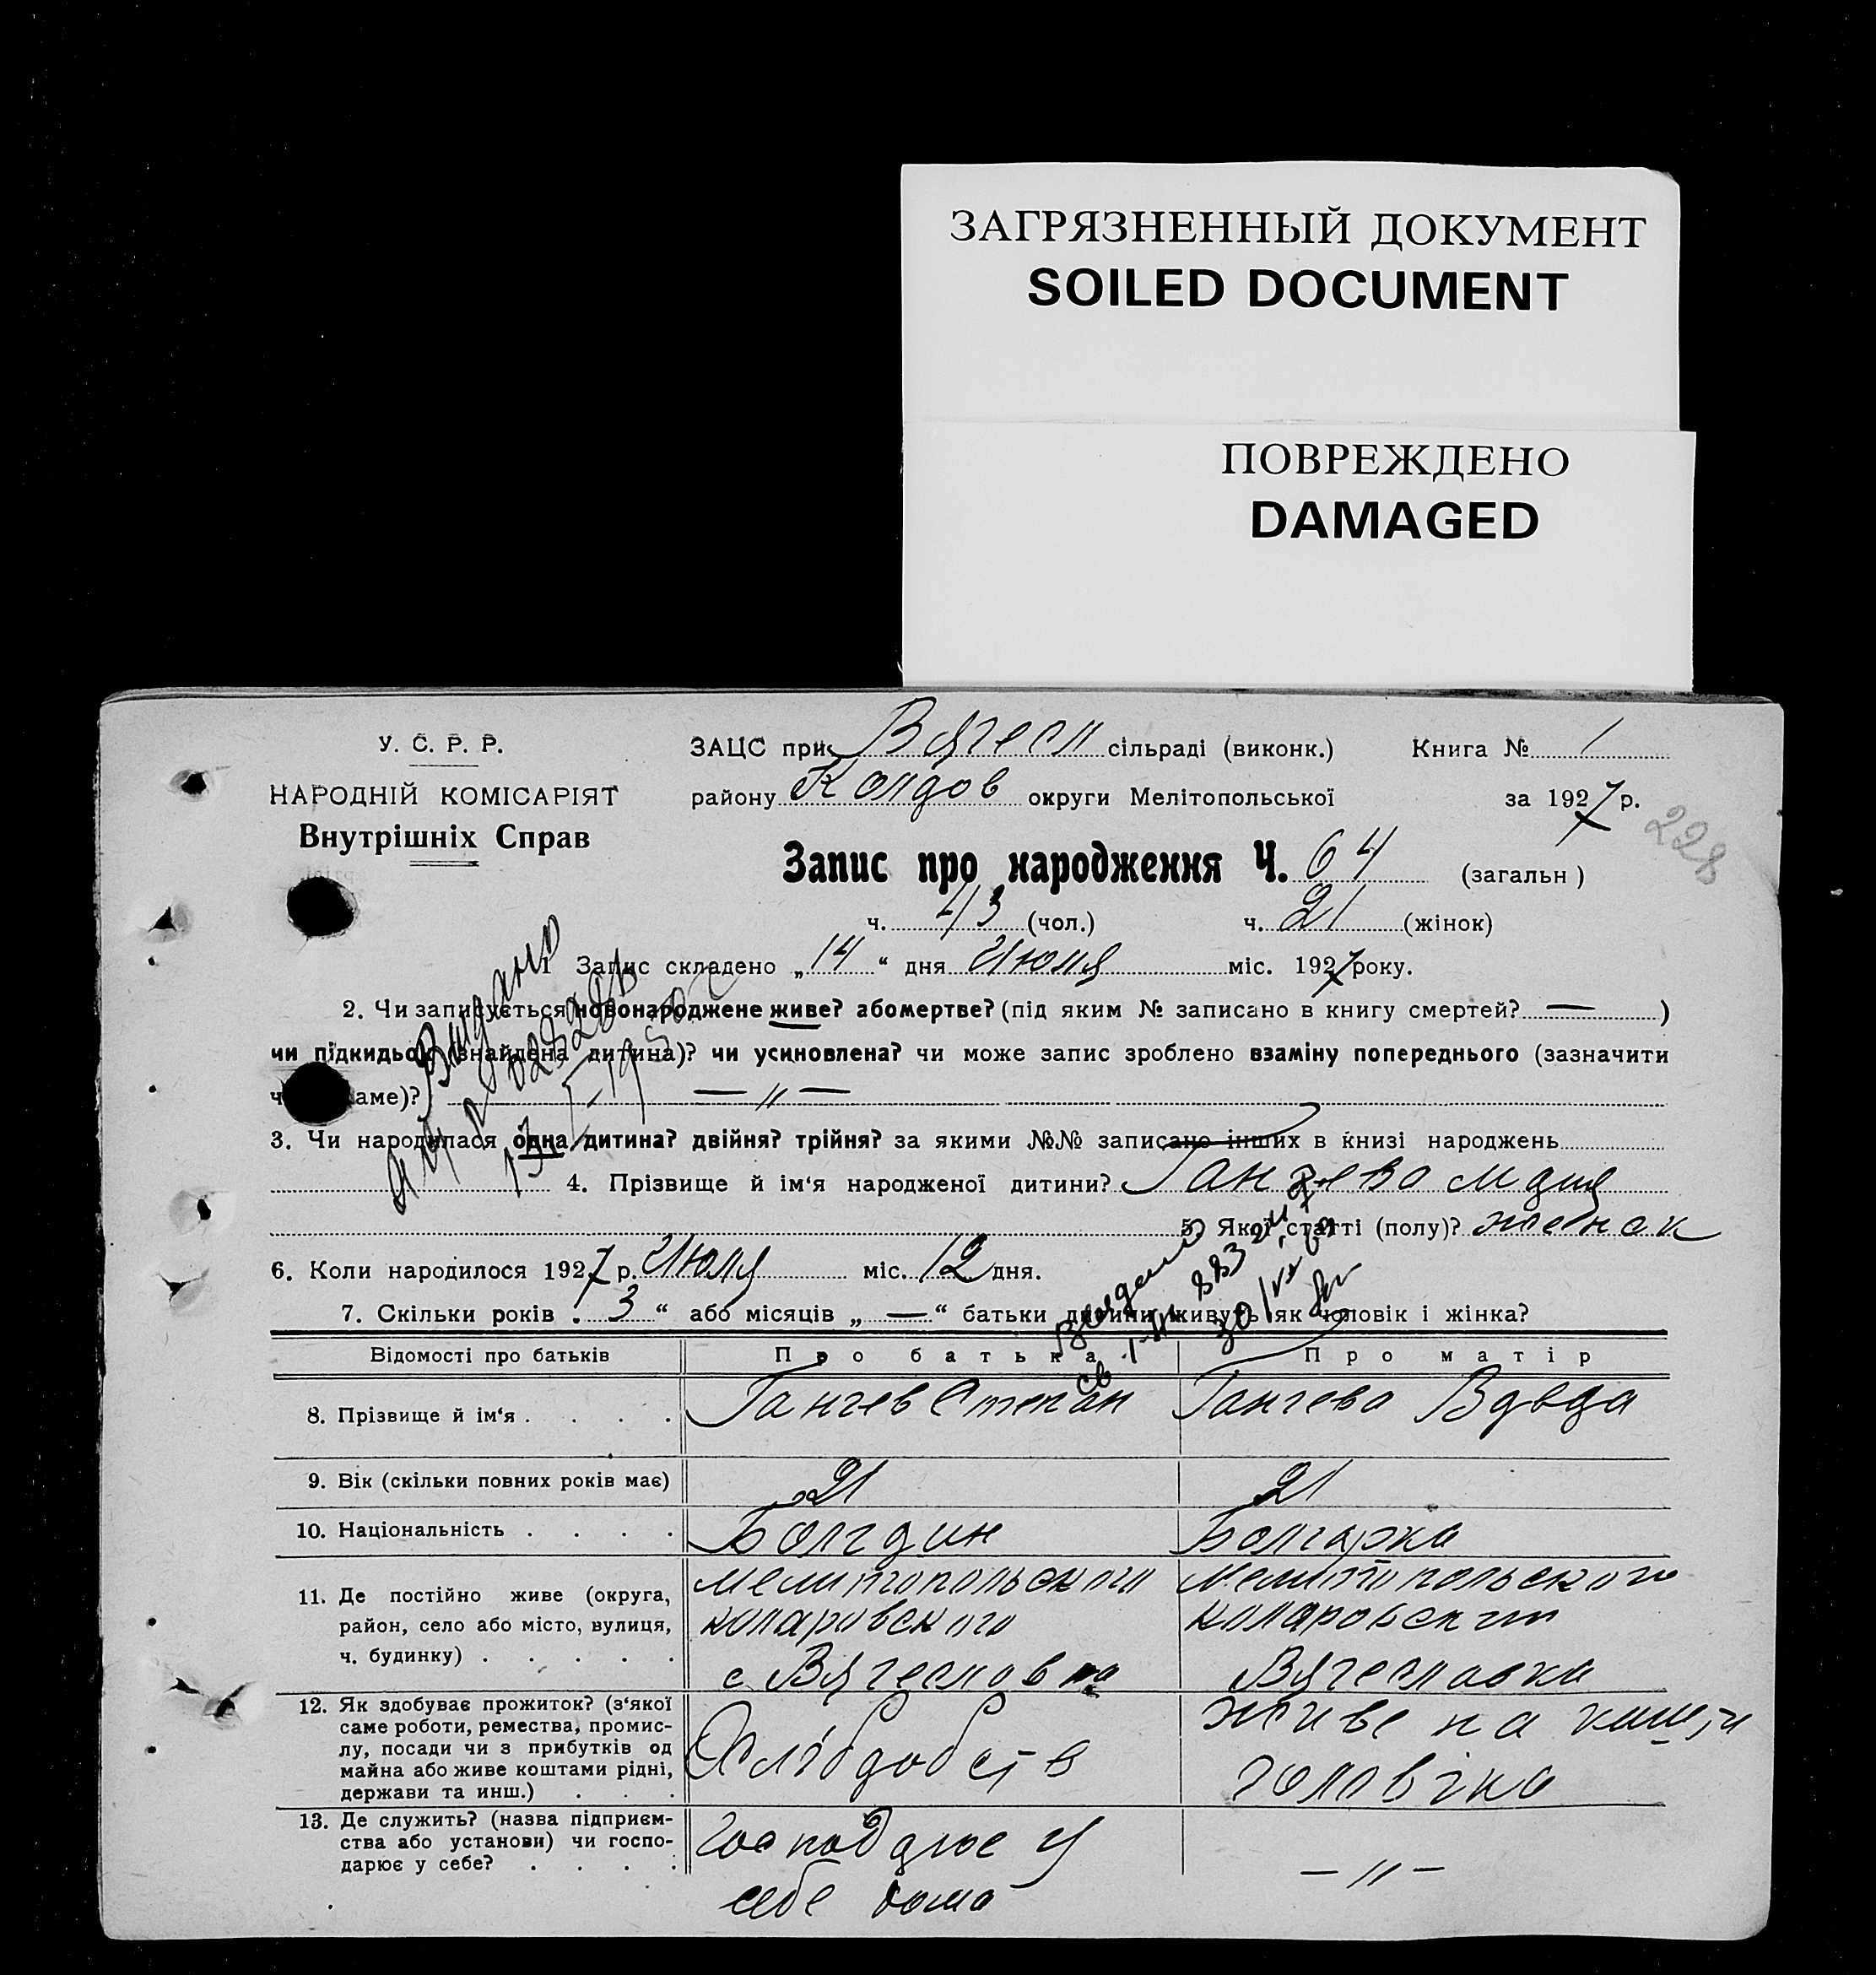 ЗАГРЯЗНЕННЫЙ ДОКУМЕНТ
SOILED DOCUMENT
ПОВРЕЖДЕНО
DAMAGED
У. С. Р. Р.
НАРОДНІЙ КОМІСАРІЯТ
Внутрішніх Справ
ЗАЦС при Вячесл сільраді (виконк.) Книга № 1
району Колдов округи Мелітопольської за 1927 р.
228
Запис про народження Ч. 64 (загальн)
ч. 43 (чол.) ч. 21 (жінок)
1 Запис складено „14“ дня Июля міс. 1927 року.
2. Чи записується новонароджене живе? або мертве? (під яким № записано в книгу смертей? — )
чи підкидьок (знайдена дитина)? чи усиновлена? чи може запис зроблено взаміну попереднього (зазначити
аме)? — „ —
3. Чи народилася одна дитина? двійня? трійня? за якими №№ записано інших в книзі народжень
4. Прізвище й ім‘я народженої дитини? Ганчева Мария
5. Якої статті (полу)? женск
6. Коли народилося 1927 р. Июля міс. 12 дня.
7. Скільки років „ 3 “ або місяців „ — “ батьки дитини живуть як чоловік і жінка?
Видано
Відомості про батьків Про батька Про матір
8. Прізвище й ім‘я . . . . Ганчев Степан Ганчева
9. Вік (скільки повних років має) 21 21
10. Національність . . . . Болгарин Болгарка
11. Де постійно живе (округа, район, село або місто, вулиця, ч. будинку) . . . . .
Мелитопольского
коларовского
с Вячеславка
Мелитопольского
коларовского
Вячеславка
12. Як здобуває прожиток? (з‘якої
саме роботи, ремества, промис-
лу, посади чи з прибутків од
майна або живе коштами рідні,
держави та инш.) . . .
Хлібороб
живе на кошти
чоловіка
13. Де служить? (назва підприєм-
ства або установи) чи госпо-
дарює у себе? . . . .
господарює у
себе дома
— „ —